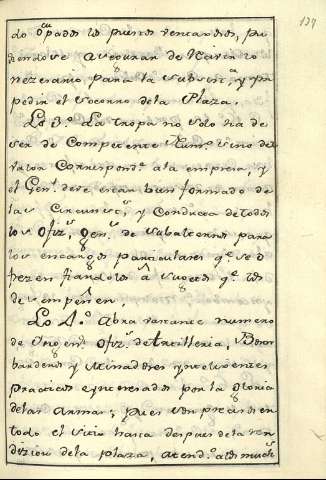 137
do ocupados los puestos ventajosos, pu
diendose asegurar de Navio lo
necesario para la subsist.ª y im
pedir el socorro dela Plaza.
Lo 3.º La tropa no solo ha de
ser de Competente Num.º sino de
valor Correspond.te ala empresa, y
el Gen.l debe estar bien formado de
las Circunst.s y Conducta de todos
los Ofiz.s Gen.s de Subalternos para
los encargos particulares q.e se o
frezcan fiandoles â sugetos q.e los
desempeñen.
Lo 4.º Abra bastante numero
de Yngen.s Ofiz.s de Artilleria, Bom
barderos y Minadores
Practicos e interesados por la Gloria
delas Armas; pues son precisos en
todo el sitio hasta despues dela ren
dizion dela plaza, atend.º alos much.s